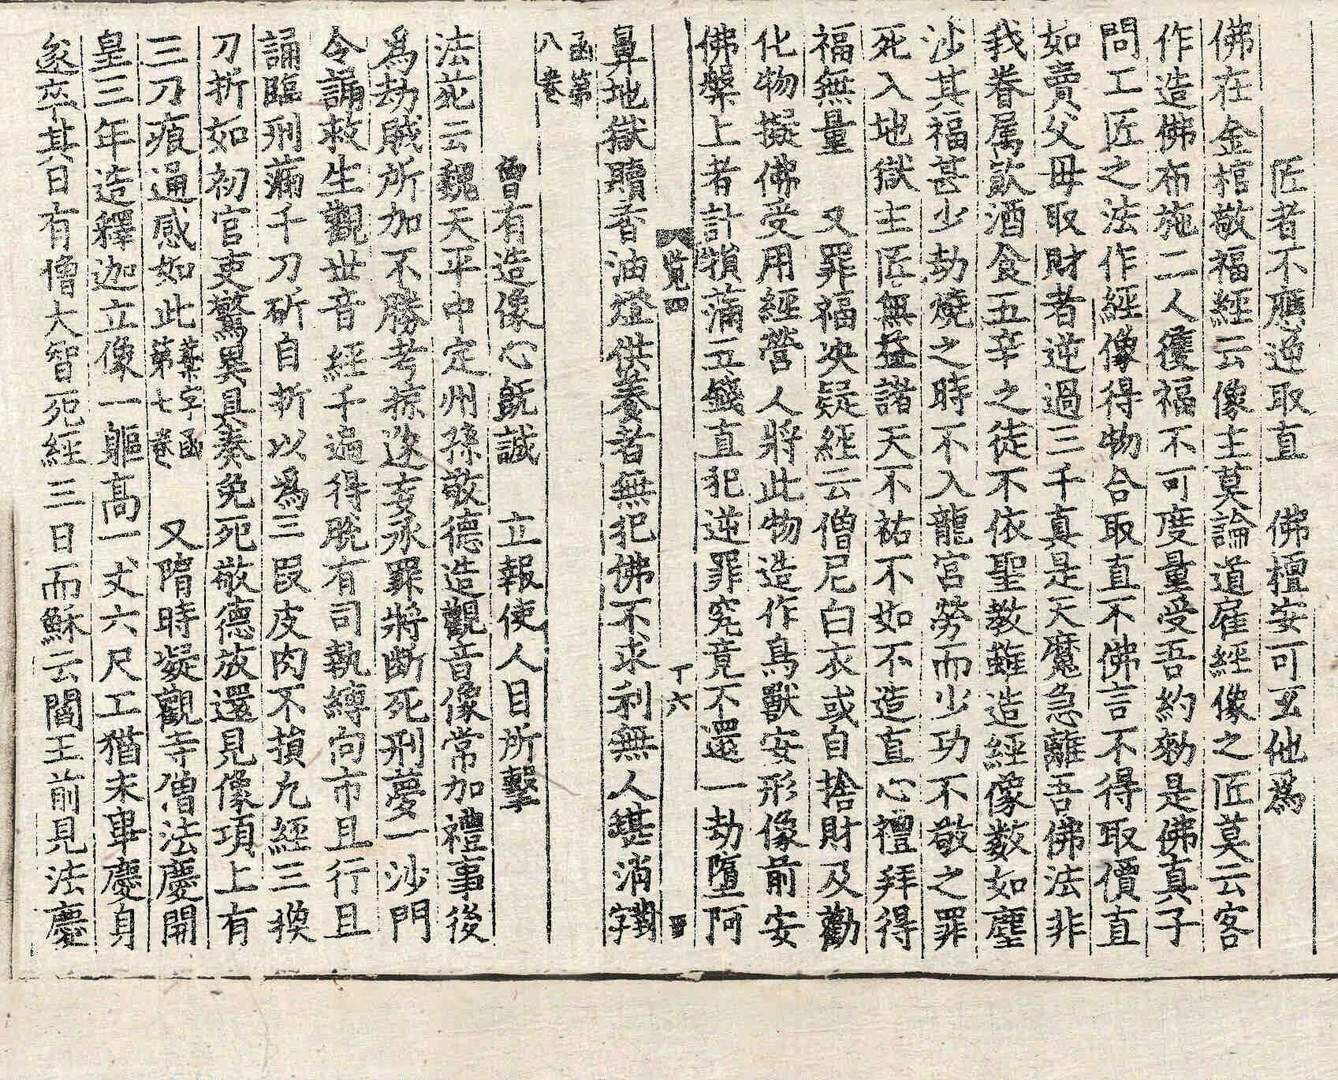 匠者不應逆取直 佛檀安可互他爲
佛在金棺敬福經云像主莫論道雇經像之匠莫云客
作造佛布施二人獲福不可度量受吾約勑是佛真子
問工匠之法作經像得物合取直不佛言不得取價直
如賣父母取財者逆過三千真是天魔急離吾佛法非
我眷属飲酒食五辛之徒不依聖教雖造經像数如塵
沙其福甚少劫燒之時不入龍宮勞而少功不敬之罪
死入地獄主匠無益諸天不祐不如不造直心禮拜得
福無量 又罪福决疑經云僧尼白衣或自捨財及勸
化物擬佛受用經營人將此物造作鳥獸安形像前安
佛槃上者計損滿五錢直犯逆罪究竟不還一劫墮阿
覽四 丁六
鼻地獄贖香油燈供養者無犯佛不求利無人堪消
函第
八卷
曾有造像心旣誠 立報使人目所擊
法苑云魏天平中定州孫敬德造觀音像常加禮事後
爲劫賊所加不勝考掠遂妄承罪將斷死刑夢一沙門
令誦救生觀世音經千遍得脫有司執縛向市且行且
誦臨刑滿千刀斫自折以爲三段皮肉不損凡經三換
刀折如初官吏驚異具奏免死敬德放還見像項上有
三刀痕通感如此 第七卷 又隋時凝觀寺僧法慶開
皇三年造釋迦立像一軀高一丈六尺工猶未畢慶身
遂卒其日有僧大智死經三日而穌云閻王前見法慶